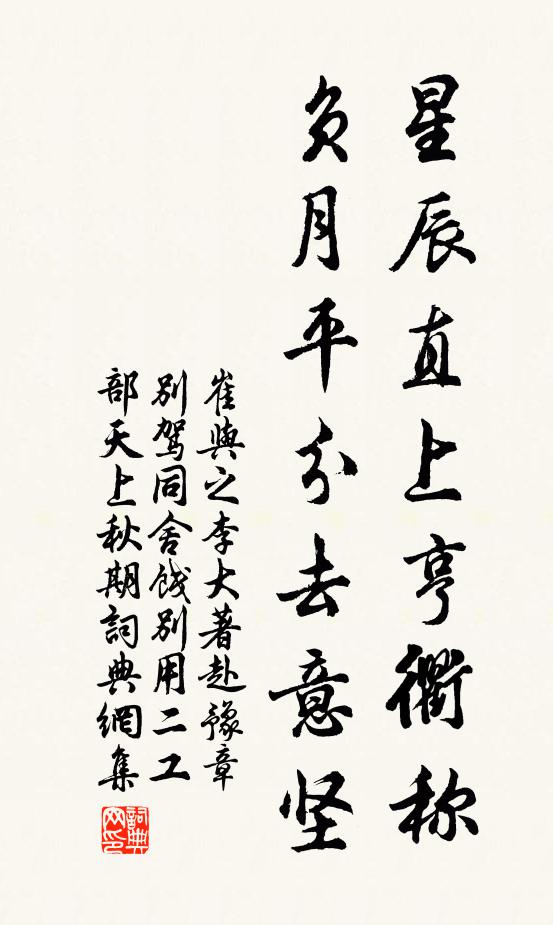 星辰直上亨衢称
负月平分去意坚
崔與之李大著赴豫章
別駕同舍餞別用二工
部天上秋期詞典網集
詞典网印